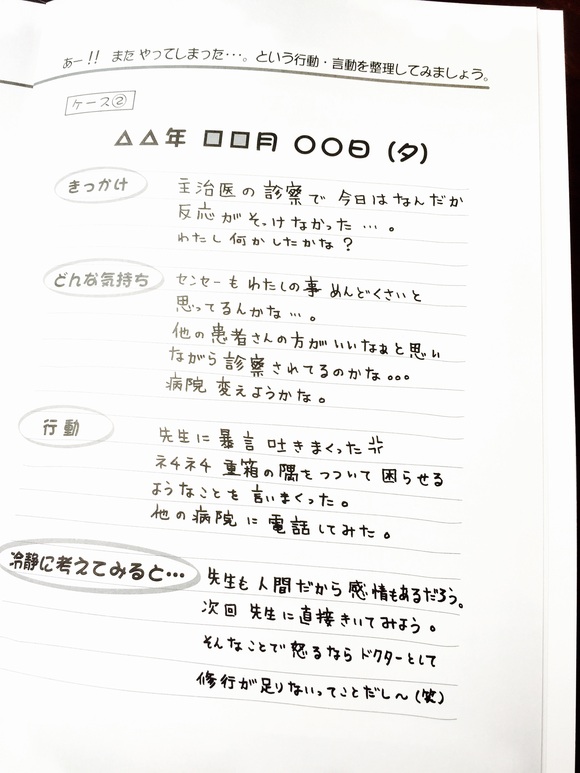 あー!! またやってしまった･･･。という行動・言動を整理してみましょう。
ケース②
△△年 □□月 〇〇日（夕）
きっかけ
主治医の診察で今日はなんだか
反応がそっけなかった…。
わたし何かしたかな？
どんな気持ち
センセーもわたしの事めんどくさいと
思ってるんかな…。
他の患者さんの方がいいなぁと思い
ながら診察されてるのかな。。。
病院変えようかな。
行動
先生に暴言吐きまくった
ネチネチ重箱の隅をつついて困らせる
ようなことを言いまくった。
他の病院に電話してみた。
冷静に考えてみると…
先生も人間だから感情もあるだろう。
次回先生に直接きいてみよう。
そんなことで怒るならドクターとして
修行が足りないってことだし〜（笑）